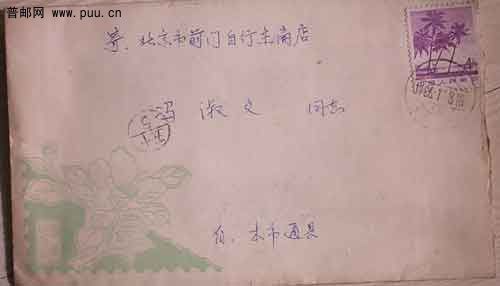 普邮网
www.puu.cn
寄.北京市前门自行车商店
4
冯淑文 同志
自.本市通县